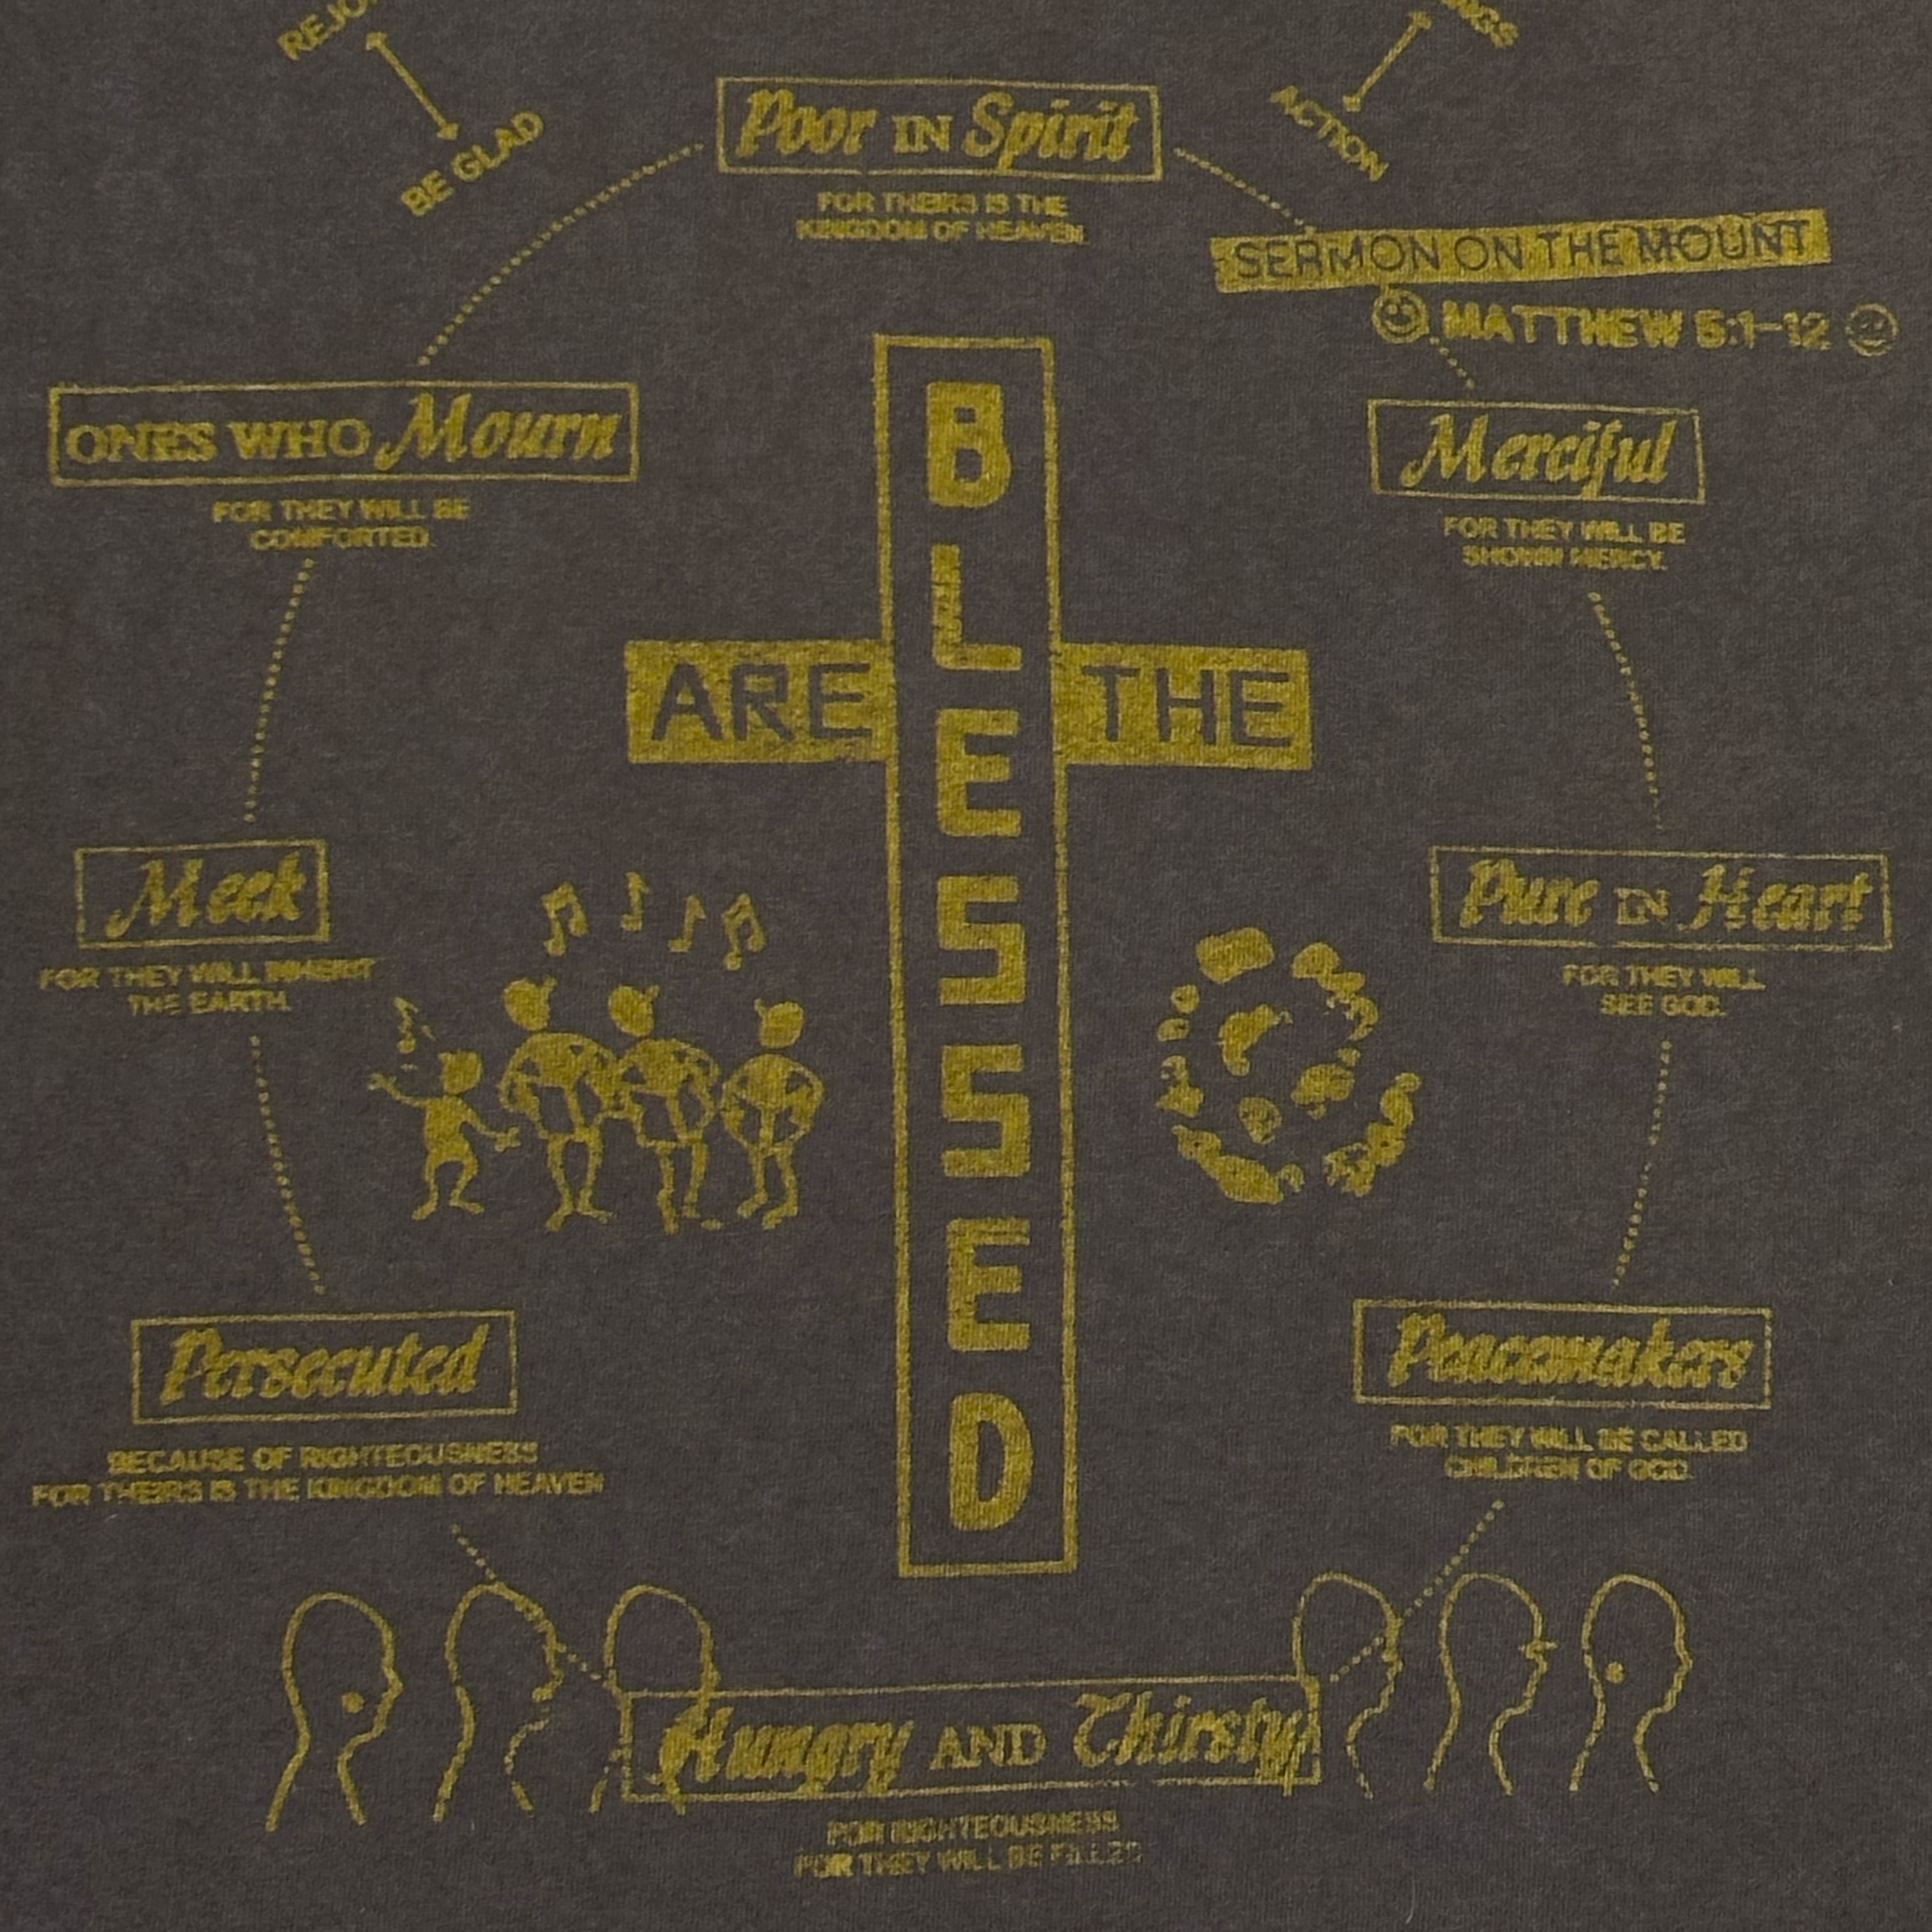 BE GLAD
ACTION
Poor IN Spirit
FOR THEIRS IS THE
KINGDOM OF HEAVEN.
SERMON ON THE MOUNT
MATTHEW 5:1-12
ONES WHO Mourn
FOR THEY WILL BE
COMFORTED.
Merciful
FOR THEY WILL BE
SHOWN MERCY.
BLESSED
ARE THE
Meek
FOR THEY WILL INHERIT
THE EARTH.
Pure IN Heart
FOR THEY WILL
SEE GOD.
Persecuted
BECAUSE OF RIGHTEOUSNESS
FOR THEIRS IS THE KINGDOM OF HEAVEN
Peacemakers
FOR THEY WILL BE CALLED
CHILDREN OF GOD.
Hungry AND Thirsty
FOR RIGHTEOUSNESS
FOR THEY WILL BE FILLED